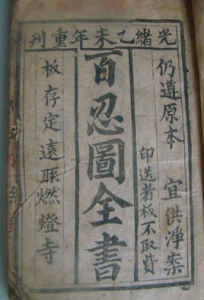 光緒乙未年重刊
仍遵原本 宜供淨案
印送者板不取費
百忍圖全書
板存定遠縣燃燈寺